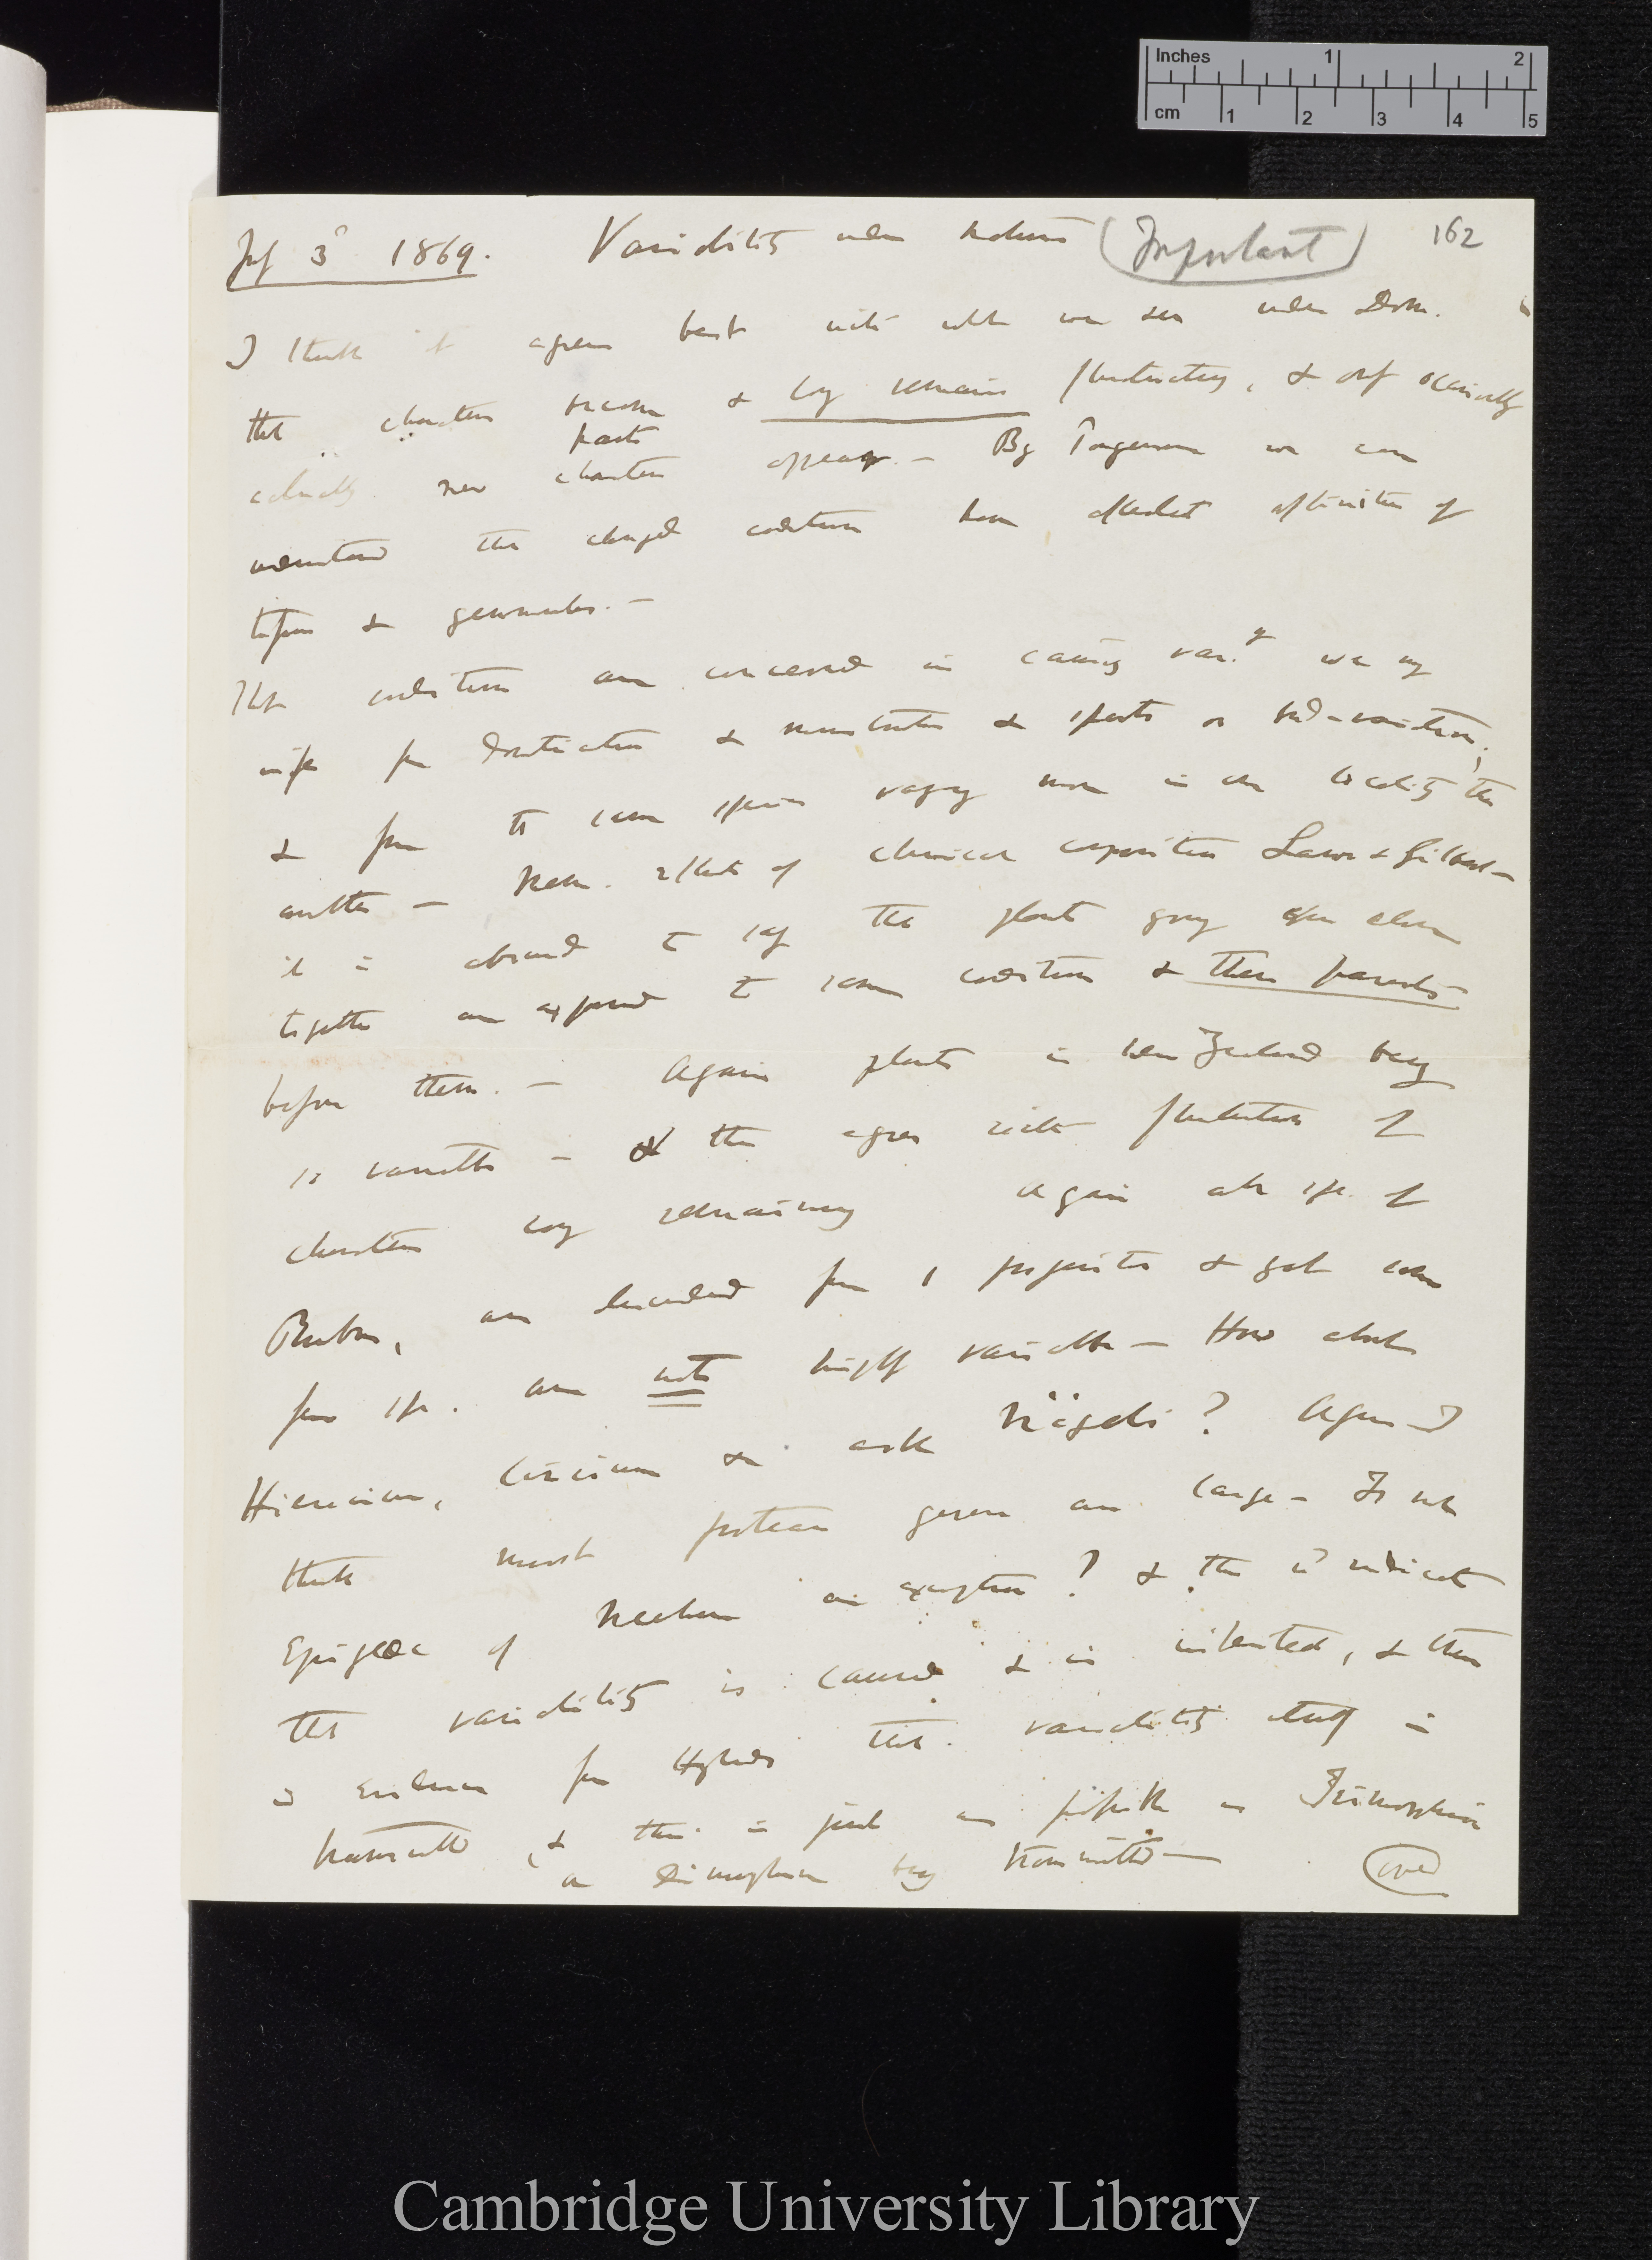 Inches 1 2
cm 1 2 3 4 5
July 3d 1869. Variability under Nature (Important) 162
I think it agrees best with what we see under Dom.
that characters become & long remain fluctuating, & only occasionally
actually new characters parts appear. — By Pangenesis we can
understand that changed conditions have affected affinities of
& gemmules. —
That conditions are concerned in causing var.y we may
infer from Domestication & monstrosities & sports or bud-variation;
& from the same species varying more in one locality than
another — Rem. effects of chemical composition Lawes & Gilbert —
it is absurd to say that plants growing close
together are exposed to same conditions & their parents
before them. — Again plants in New Zealand being
so variable — & this agrees with fluctuation of
characters long remaining Again all sp. of
Rubus, are descended from 1 progenitor & yet some
few sp. are not highly variable — How about
Hieracium, Cirsium &c ask Nägeli? Again I
think most protean genera are large — Is not
Epigaea of Meehan an exception? & this wd indicate
that variability is caused & is inherited, & there
is evidence from Hybrids that variability itself is
transmitted, & this is just as possible as Trimorphism
or Dimorphism being transmitted —
(over)
Cambridge University Library